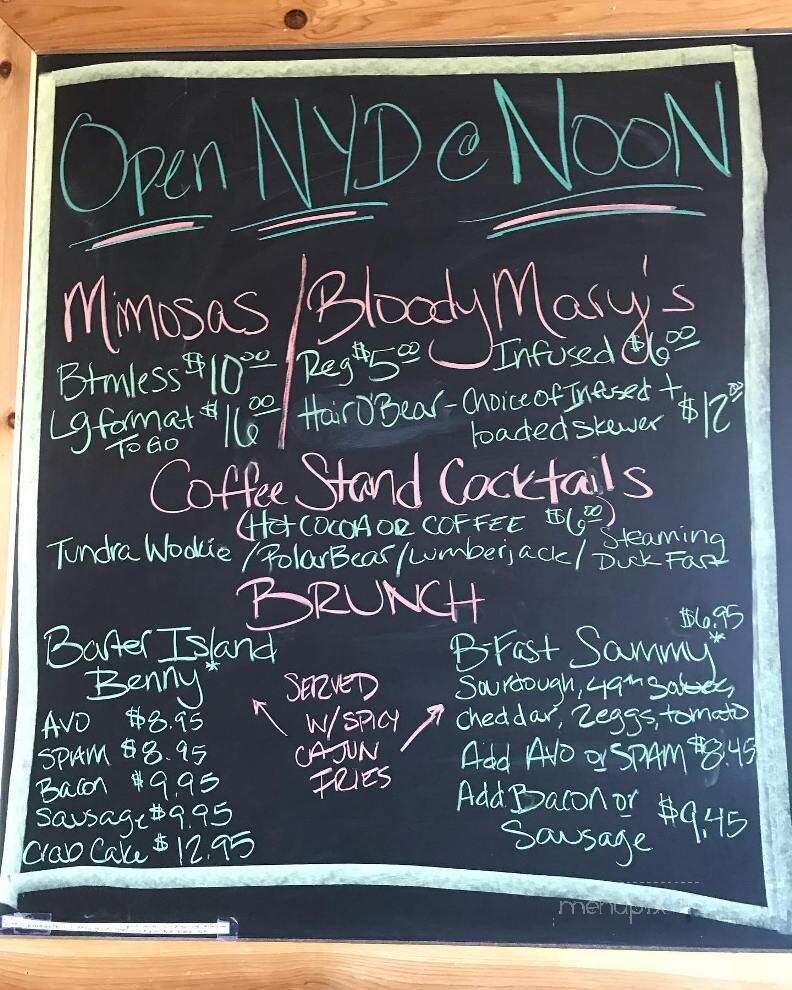 Open NYD @ NOON
Mimosas / Bloody Mary's
Btmless $10.00
Lg format $16.00
TO GO
Reg $5.00 Infused $6.00
Hair O'Bear - Choice of Infused + loaded skewer $12.00
Coffee Stand Cocktails
(HOT COCOA OR COFFEE $6.00)
Tundra Wookie / Polar Bear / Lumberjack / Steaming Duck Fart
BRUNCH
Barter Island
Benny*
AVO $8.95
SPAM $8.95
Bacon $9.95
Sausage $9.95
Crab Cake $12.95
SERVED
W/ SPICY
CAJUN
FRIES
$6.95
B-Fast Sammy*
Sourdough, 49th
cheddar, 2 eggs, tomato
Add AVO or SPAM $8.45
Add Bacon or
Sausage $9.45
menupix